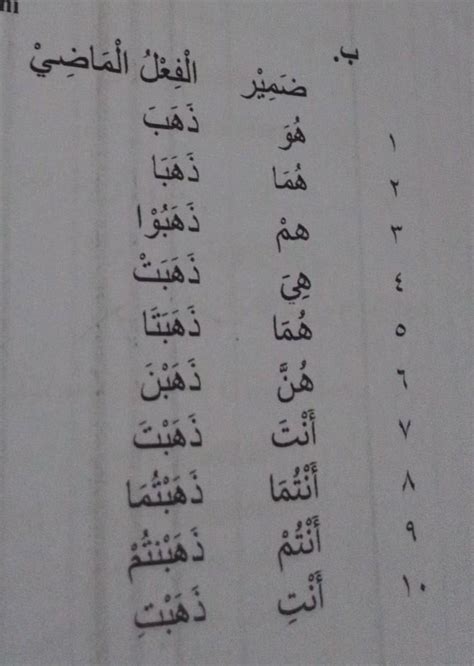 ب.
ضَمِيْر الْفِعْلُ الْمَاضِيْ
١ هُوَ ذَهَبَ
٢ هُمَا ذَهَبَا
٣ هِمْ ذَهَبُوْا
٤ هِيَ ذَهَبَتْ
٥ هُمَا ذَهَبَتَا
٦ هُنَّ ذَهَبْنَ
٧ أَنْتَ ذَهَبْتَ
٨ أَنْتُمَا ذَهَبْتُمَا
٩ أَنْتُمْ ذَهَبْنتُمْ
١٠ أَنْتِ ذَهَبْتِ